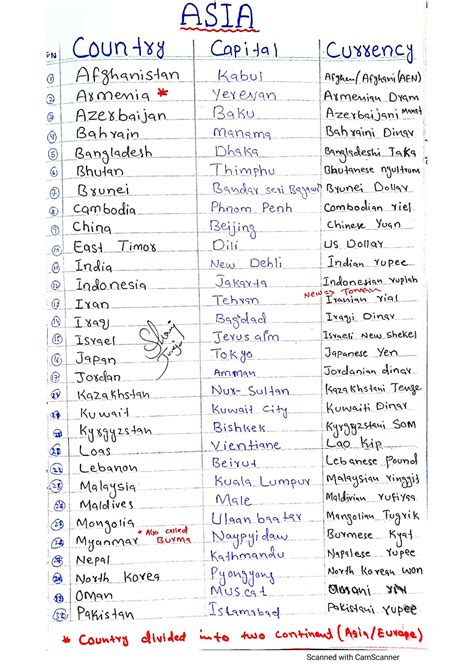 ASIA
SN Country Capital Currency
1 Afghanistan Kabul Afghan/Afghani (AFN)
2 Armenia * Yerevan Armenian Dram
3 Azerbaijan Baku Azerbaijani Manat
4 Bahrain Manama Bahraini Dinar
5 Bangladesh Dhaka Bangladeshi Taka
6 Bhutan Thimphu Bhutanese ngultrom
7 Brunei Bandar seri Begawan Brunei Dollar
8 Cambodia Phnom Penh Combodian riel
9 China Beijing Chinese Yuan
10 East Timor Dili US Dollar
11 India New Dehli Indian rupee
12 Indonesia Jakarta Indonesian rupiah
New => Toman
13 Iran Tehran Iranian rial
14 Iraq Bagdad Iraqi Dinar
15 Israel Jerusalm Israeli New Shekel
16 Japan Tokyo Japanese Yen
17 Jordan Amman Jordanian dinar
Kazakhstan Nur-Sultan Kazakhstani Tenge
Kuwait Kuwait City Kuwaiti Dinar
20 Kyrgyzstan Bishkek Kyrgyzstani SOM
21 Loas Vientiane Lao Kip
22 Lebanon Beirut Lebanese Pound
23 Malaysia Kuala Lumpur Malaysian ringgit
Maldives Male Maldivian rufiyaa
25 Mongolia Ulaan baatar Mangolian Tugrik
26 Myanmar * Also called Burma Naypyidaw Burmese Kyat
Nepal Kathmandu Napalese rupee
North Korea Pyongyong North Korean won
Oman Muscat Omani
30 Pakistan Islamabad Pakistani rupee
* Country divided into two continent (Asia/Europe)
Scanned with CamScanner